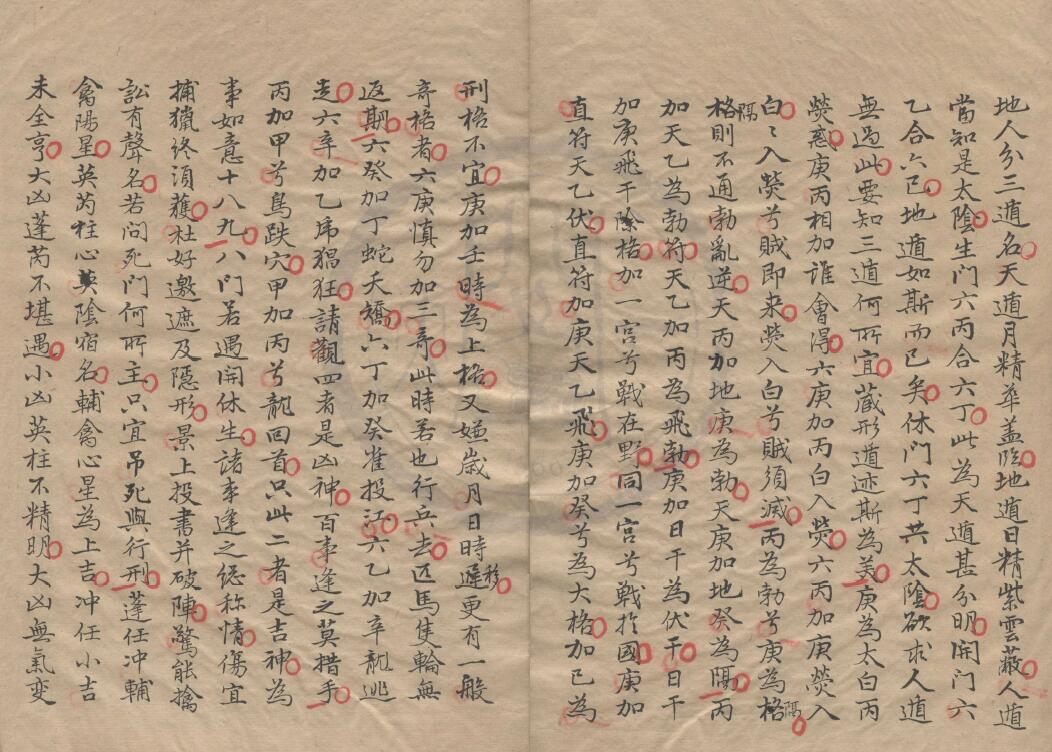 地人分三遁名天遁月精華盖陰地遁日精紫雲蔽人遁
當知是太陰生門六丙合六丁此為天遁甚分明開門六
乙合六己地遁如斯而已矣休門六丁共太陰欲求人遁
無過此要知三遁何所宜蔵形遁迹斯為美庚為太白丙
熒惑庚丙相加誰會得六庚加丙白入熒六丙加庚熒入
白〻入熒兮賊即来熒入白兮賊須滅丙為勃兮庚為格
格則不通勃亂逆天丙加地庚為勃天庚加地癸為隔丙
加天乙為勃符天乙加丙為飛勃庚加日干為伏干日干
加庚飛干除格加一宮兮戰在野同一宮兮戰扵國庚加
直符天乙伏直符加庚天乙飛庚加癸兮為大格加己為
刑格不宜庚加壬時為上格又嫌嵗月日時遲移更有一般
奇格者六庚慎勿加三奇此時若也行兵去匹馬隻輪無
返期六癸加丁蛇夭矯六丁加癸雀投江六乙加辛龍逃
走六辛加乙乕猖狂請觀四者是凶神百事逢之莫措手
丙加甲兮鳥跌穴甲加丙兮龍回首只此二者是吉神為
事如意十八九八門若遇開休生諸事逢之總称情傷宜
捕獵終須獲杜好邀遮及隱形景上投書并破陣驚能擒
訟有聲名若问死門何所主只宜吊死與行刑蓬任冲輔
禽陽星英芮柱心陰宿名輔禽心星為上吉冲任小吉
未全亨大凶蓬芮不堪遇小凶英柱不精明大凶無氣变